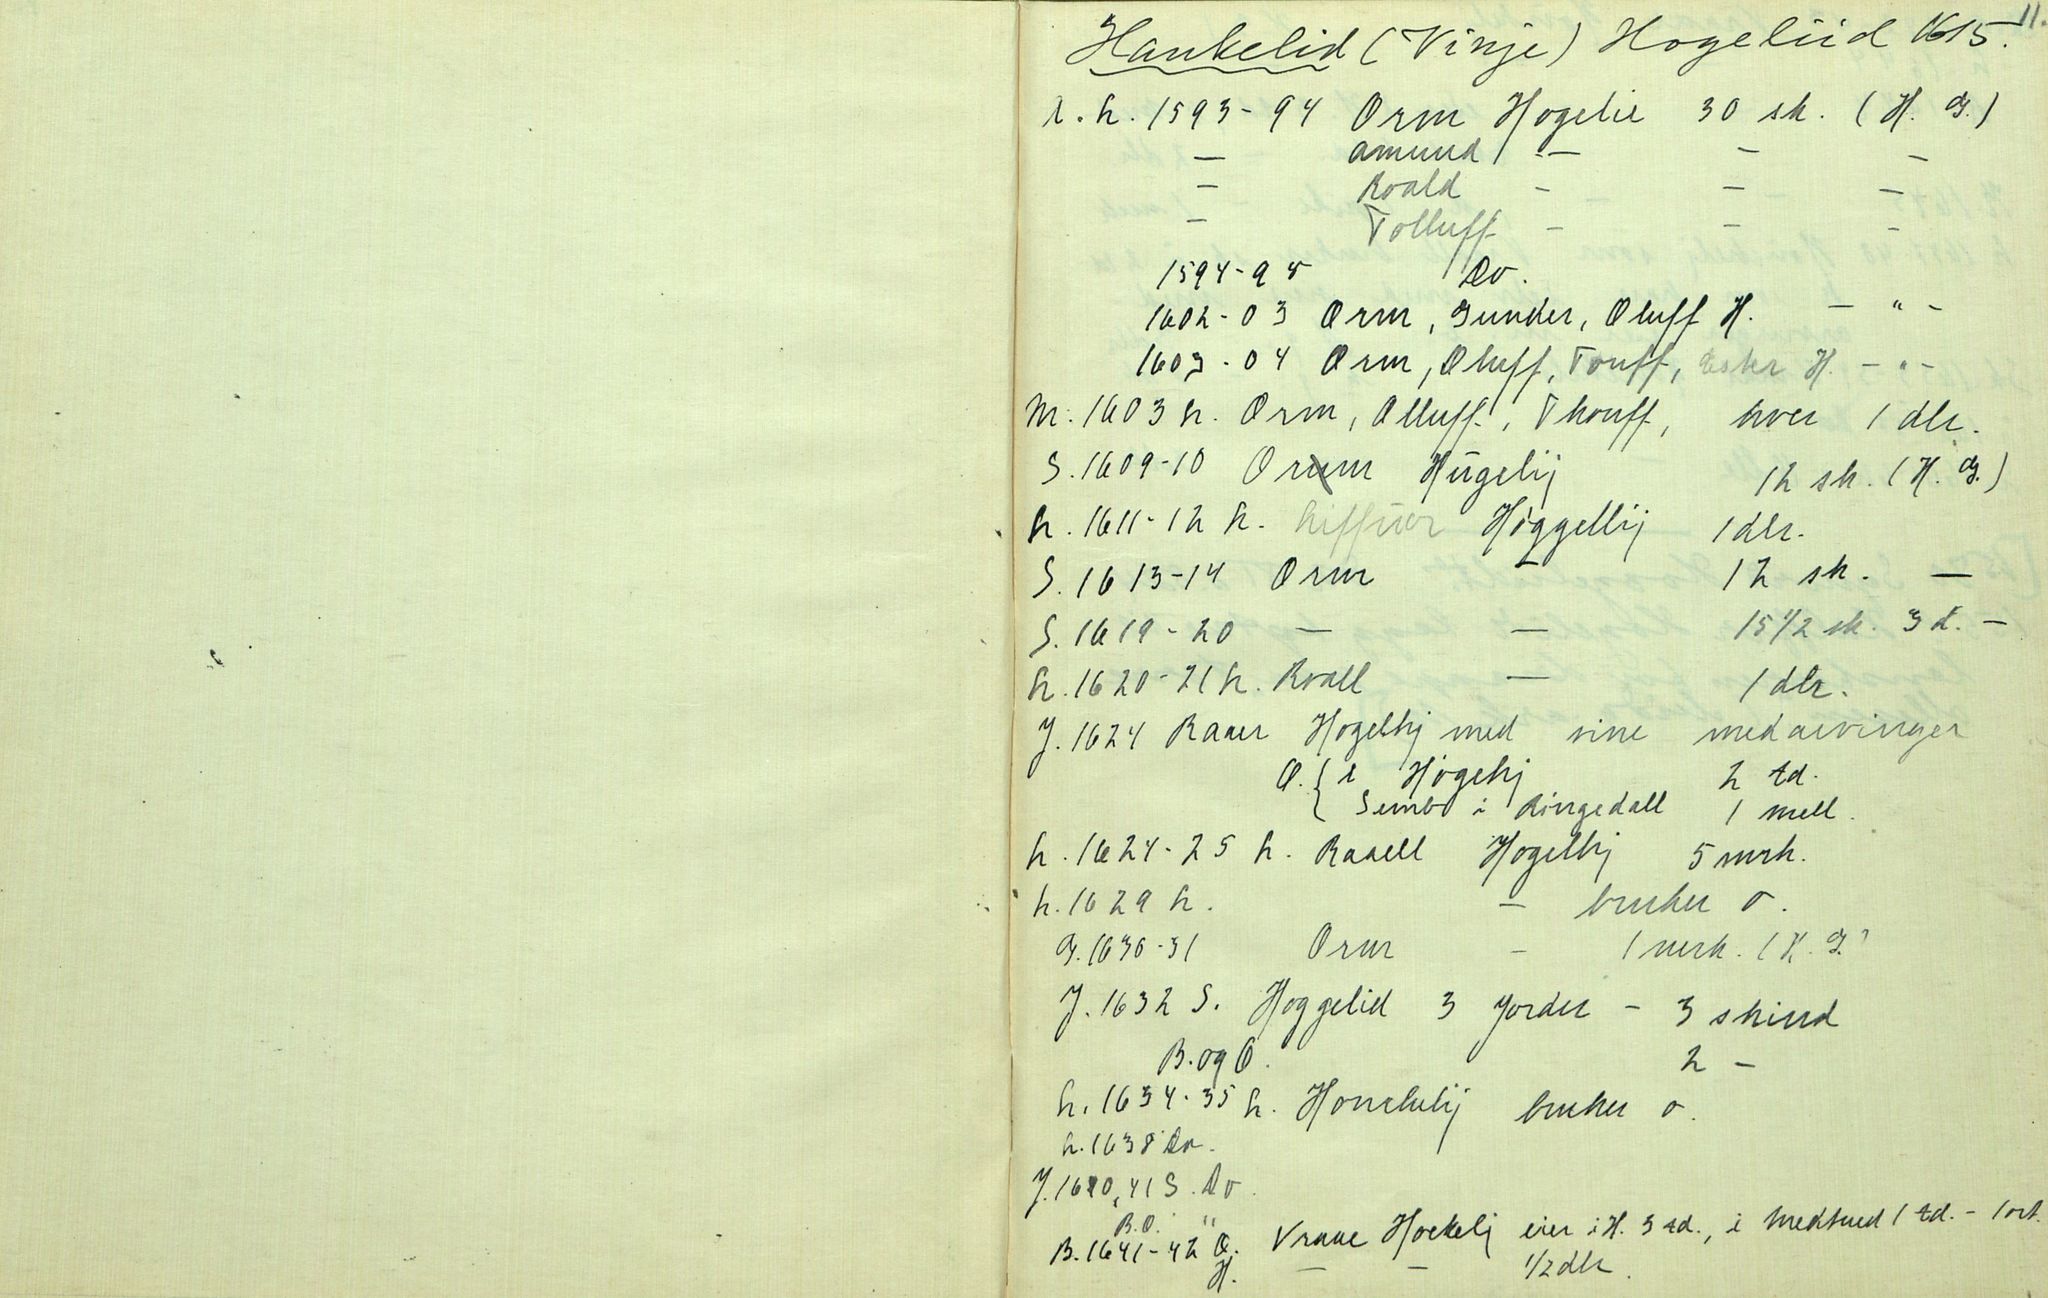 11.
Haukelid (Vinje) Hogeliid 1615.
L. h. 1593-94 Orm Hogelie 30 sk. (H. G.)
— Amund — — —
— Roald — — —
— Tolluff — — —
1594-95 Do.
1602-03 Orm, Gunder, Oluff H. — " —
1603-04 Orm, Oluff, Touff, H. — " —
M. 1603 h. Orm, Olluff, Thouff, hver 1 dlr.
S. 1609-10 Orm Hügelij 12 sk. (H. G.)
h. 1611-12 h. Høggellij 1 dlr.
S. 1613-14 Orm — 12 sk. —
S. 1619-20 — — 15 1/2 sk. 3 d. —
h. 1620-21 h. Roall — 1 dlr.
J. 1624 Raaer Hogellij med sine medarvinger
O. { i Høgelij 2 td.
Sembo i Ringedall 1 mell.
h. 1624-25 h. Raaell Hogellij 5 mrk.
h. 1629 h. — bruker o.
G. 1630-31 Orm — 1 mrk. (H. G.)
J. 1632 S. Hoggelid 3 Jorder — 3 skind
B. og O. 2 —
h. 1634-35 h. bruker o.
h. 1638 Do.
J. 1640, 41 S. Do.
B.O. "
B. 1641-42 O. Vraae Hoekelj eier i H. 3 td., i 1 td. — 1 ort.
H. — — 1/2 dlr.